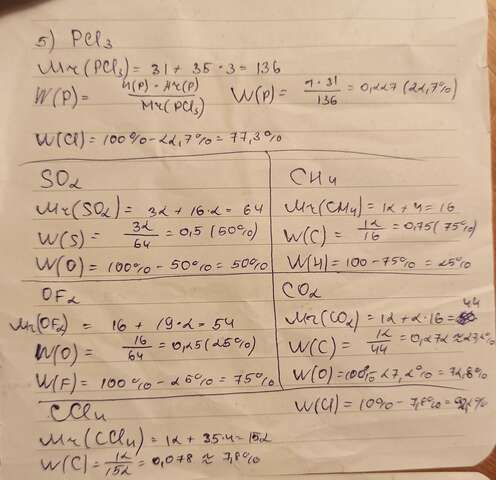 5) PCl₃
Mr(PCl₃) = 31 + 35 · 3 = 136
W(P) = n(P) · Ar(P) / Mr(PCl₃) W(P) = 1 · 31 / 136 = 0,227 (22,7%)
W(Cl) = 100% - 22,7% = 77,3%
SO₂
Mr(SO₂) = 32 + 16 · 2 = 64
W(S) = 32 / 64 = 0,5 (50%)
W(O) = 100% - 50% = 50%
CH₄
Mr(CH₄) = 12 + 4 = 16
W(C) = 12 / 16 = 0,75 (75%)
W(H) = 100 - 75% = 25%
OF₂
Mr(OF₂) = 16 + 19 · 2 = 54
W(O) = 16 / 64 = 0,25 (25%)
W(F) = 100% - 25% = 75%
CO₂
44
Mr(CO₂) = 12 + 2 · 16 =
W(C) = 12 / 44 = 0,272 ≈ 27,2%
W(O) = 100% - 27,2% = 72,8%
CCl₄
Mr(CCl₄) = 12 + 35 · 4 = 152
W(C) = 12 / 152 = 0,078 ≈ 7,8%
W(Cl) = 10% - 7,8% = 92,2%